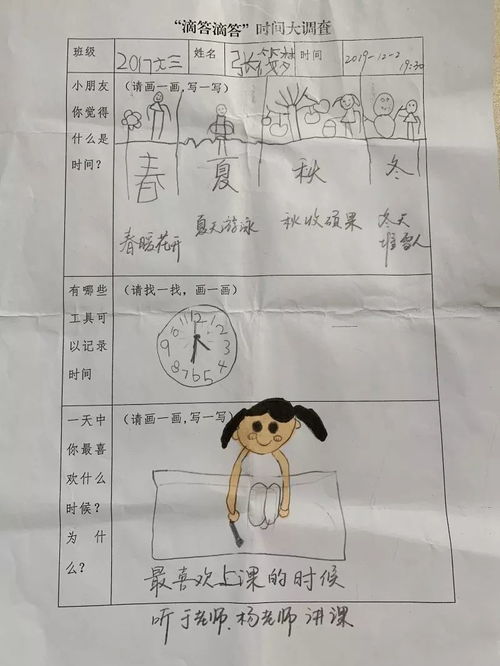 “滴答滴答”时间大调查
班级 2017大三 姓名 张筱梦 时间 2019-12-2
19:30
小朋友你觉得什么是时间？
(请画一画,写一写)
春 夏 秋 冬
春暖花开 夏天游泳 秋收硕果 冬天堆雪人
有哪些工具可以记录时间
(请找一找，画一画)
12 1 2 3 4 5 6 7 8 9 10 11
一天中你最喜欢什么时候？为什么？
(请画一画,写一写)
最喜欢上课的时候
听于老师.杨老师讲课